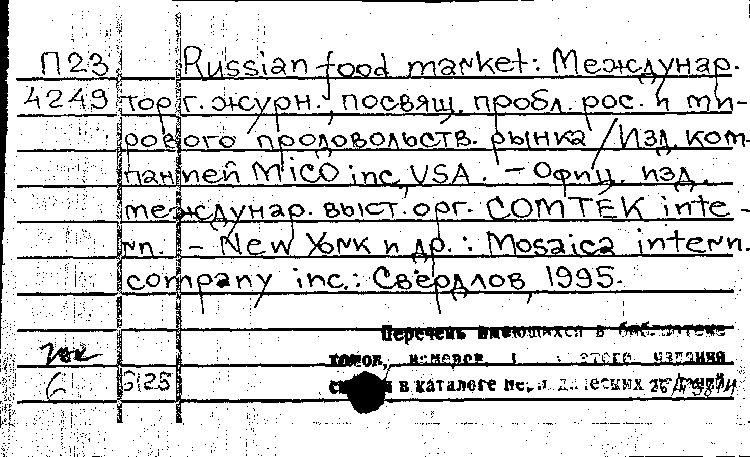 П23 Russian food market: Междунар.
4249 торг. журн., посвящ. пробл. рос. и ми-
рового продовольств. рынка / Изд. ком-
панией MICO inc, USA. - Офиц. изд.
междунар. выст. орг. COMTEK inte-
rn. - New York и др.: Mosaica intern.
company inc.: Свердлов, 1995.
Перечень имеющихся в библиотеке
томов, номеров этого издания
в каталоге
6 6125